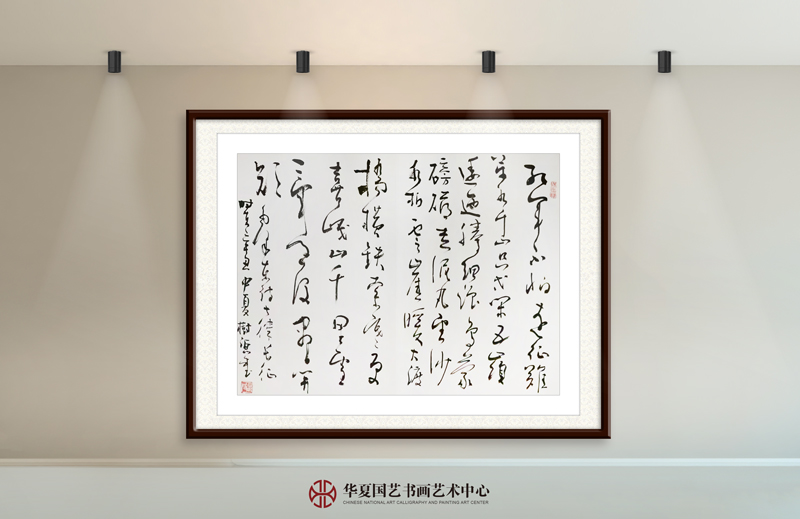 红军不怕远征难
万水千山只等闲五岭
逶迤腾细浪乌蒙
磅礴走泥丸金沙
水拍云崖暖大渡
桥横铁索寒更
喜岷山千里雪
三军过后尽开
颜
毛泽东诗七律长征
辛丑中夏树
华夏国艺书画艺术中心
CHINESE NATIONAL ART CALLIGRAPHY AND PAINTING ART CENTER